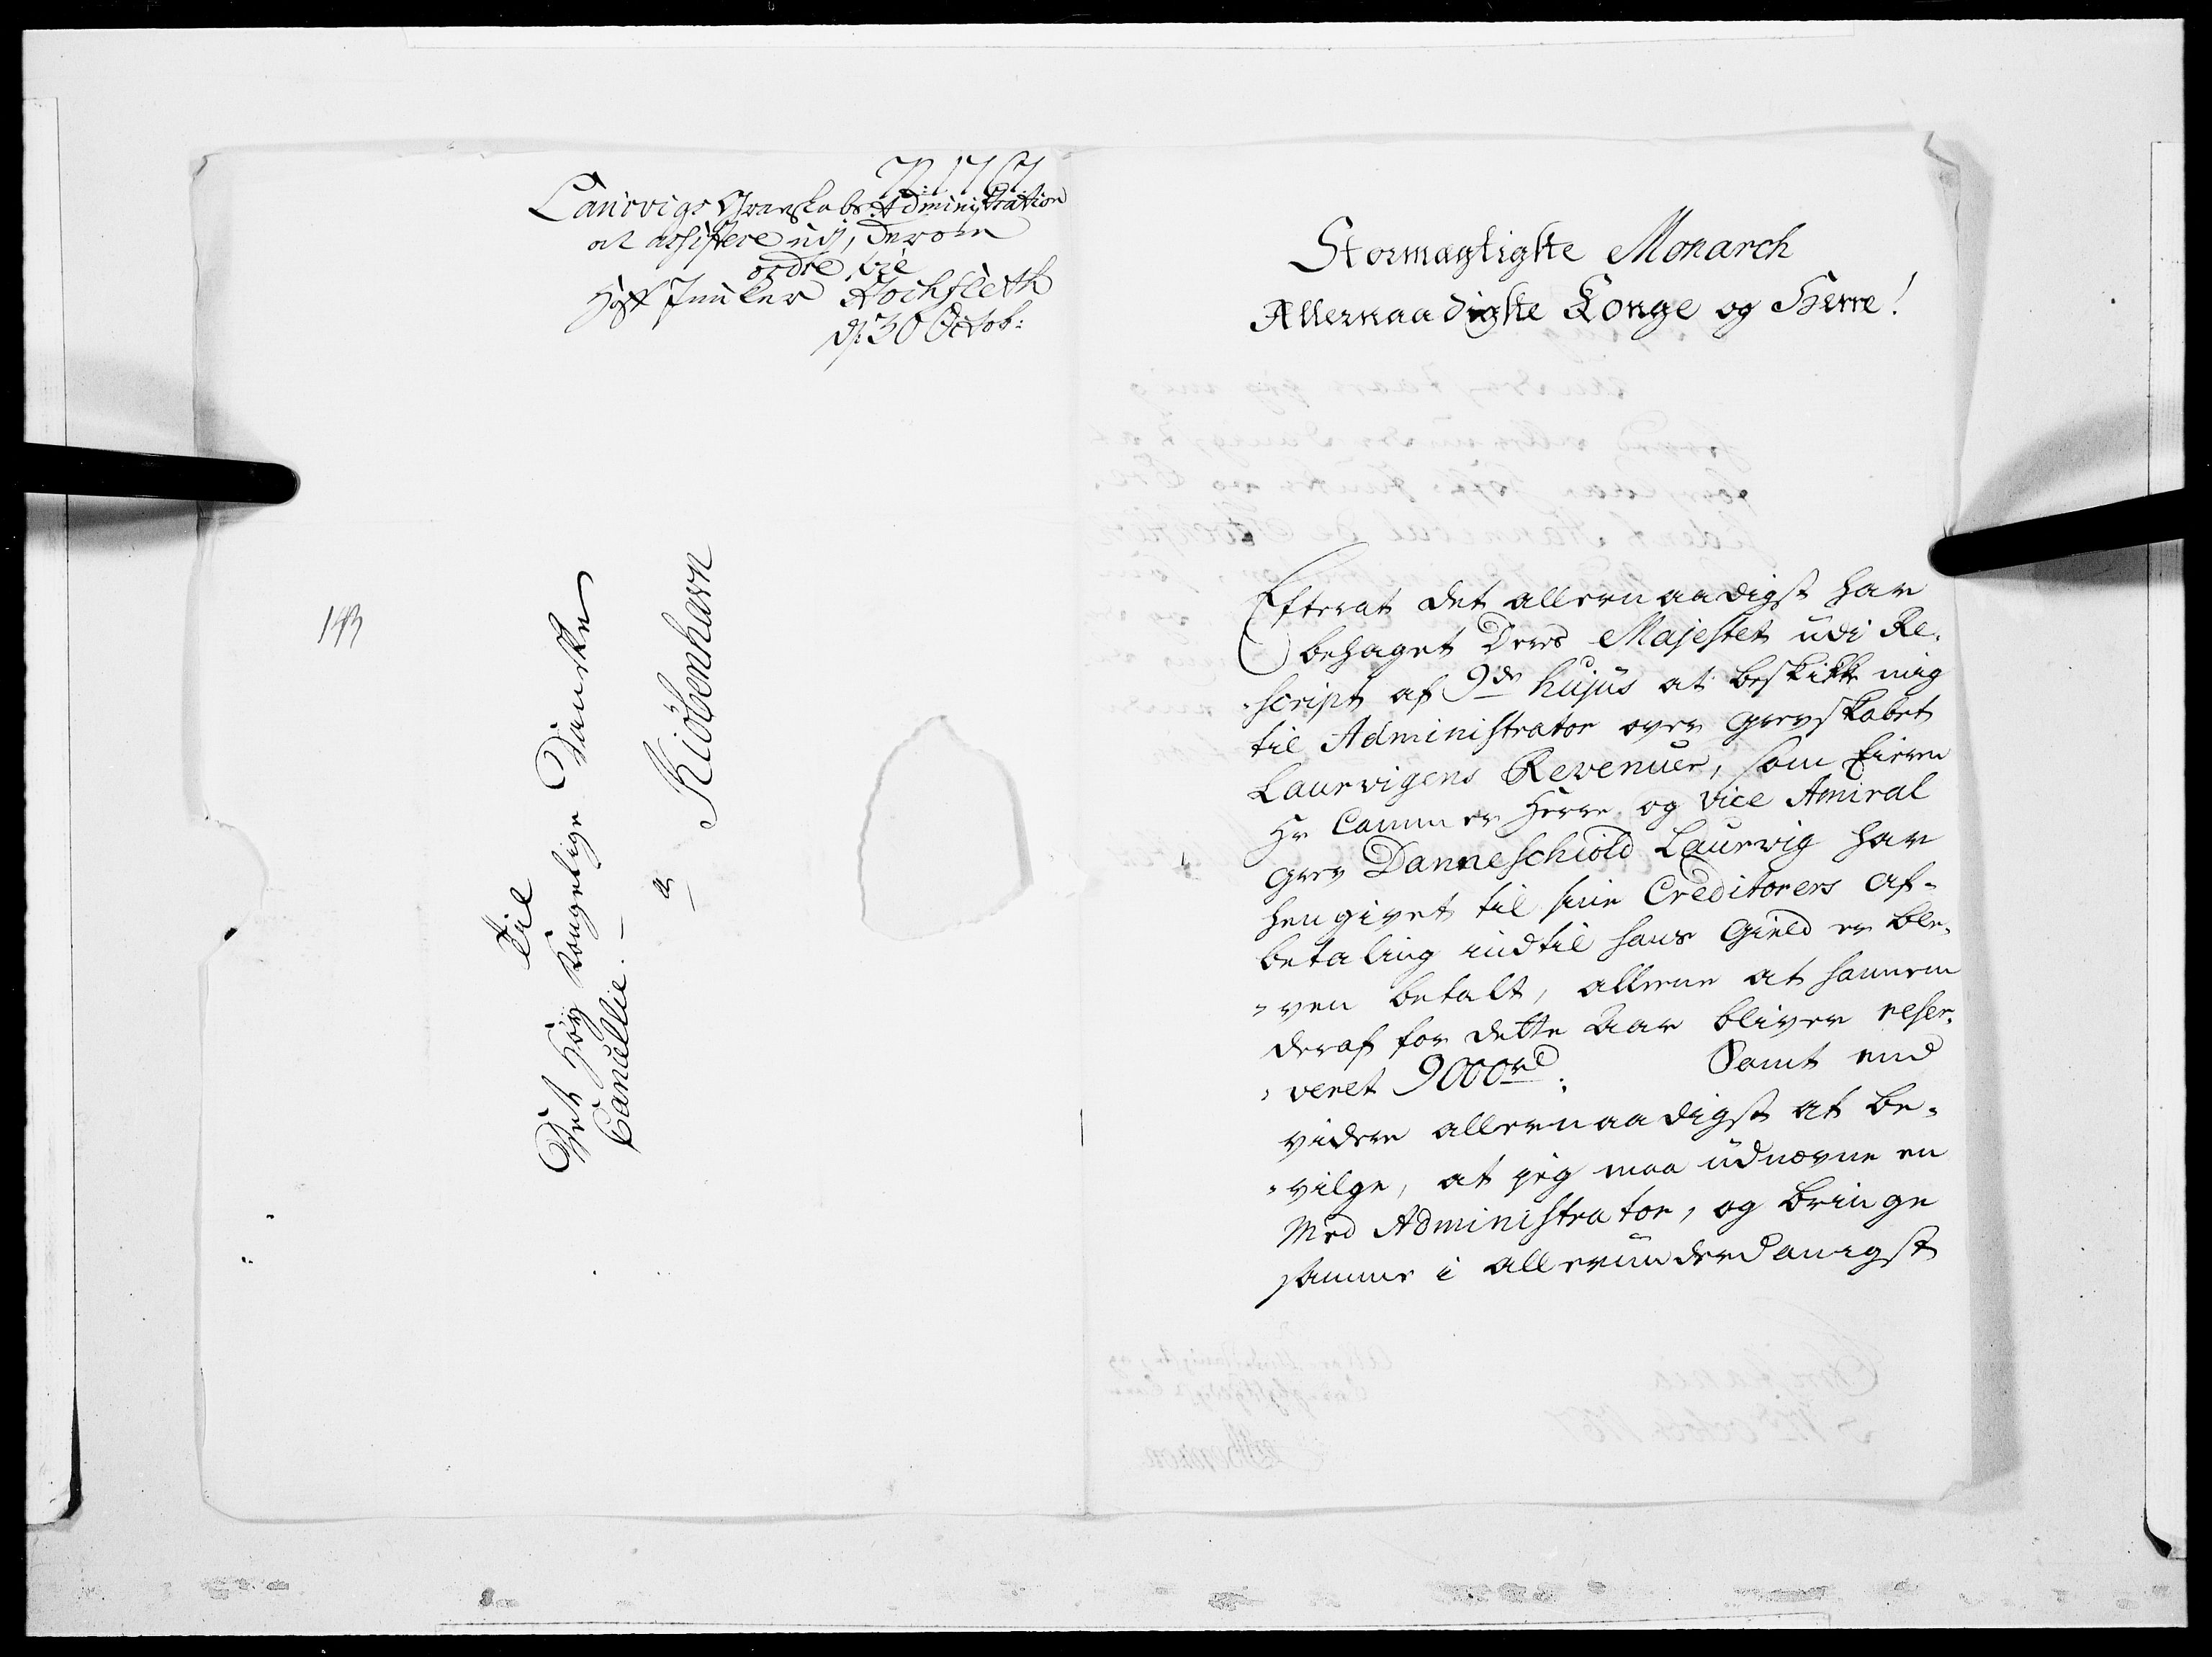 Ao 1767
Laurvigs Grevskabs Administration
at assistere udj, derom
ordre, til
Hoff Junker Hochfleth
dj 30 Octob:
143
Til
Det Høy Kongelige Danske
Cancellie. –
a
Kiöbenhavn
Stormægtigste Monarch
Allernaadigste Konge og Herre!
Efterat det allernaadigst har
behaget Deres Majestet udi Re-
script af 9de hujus at beskikke mig
til Administrator over Grevskabet
Laurvigens Revenuer, som Eieren
Hr Cammer Herre og Vice Amiral
Grev Danneschiold Laurwig har
hengivet til sine Creditorers af-
betaling indtil hans Gield er ble-
ven betalt, allene at hannem
deraf for dette Aar bliver reser-
veret 9000rd. Samt end
videre allernaadigst at be-
vilge, at jeg maa udnævne en
Med Administrator, og bringe
samme i allerunderdanigst